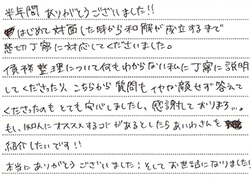 半年間ありがとうございました!!
はじめて対面した時から和解が成立するまで
懇切丁寧に対応してくださいました。
債務整理について何もわからない私に丁寧に説明
してくださったり、こちらから質問もイヤな顔もせず答えて
くださったりもとても安心しましたし、感謝しております…。
もし、知人にオススメするコトがあるとしたらあいわさんを
紹介したいです!!
本当にありがとうございました!そしてお世話になりました!